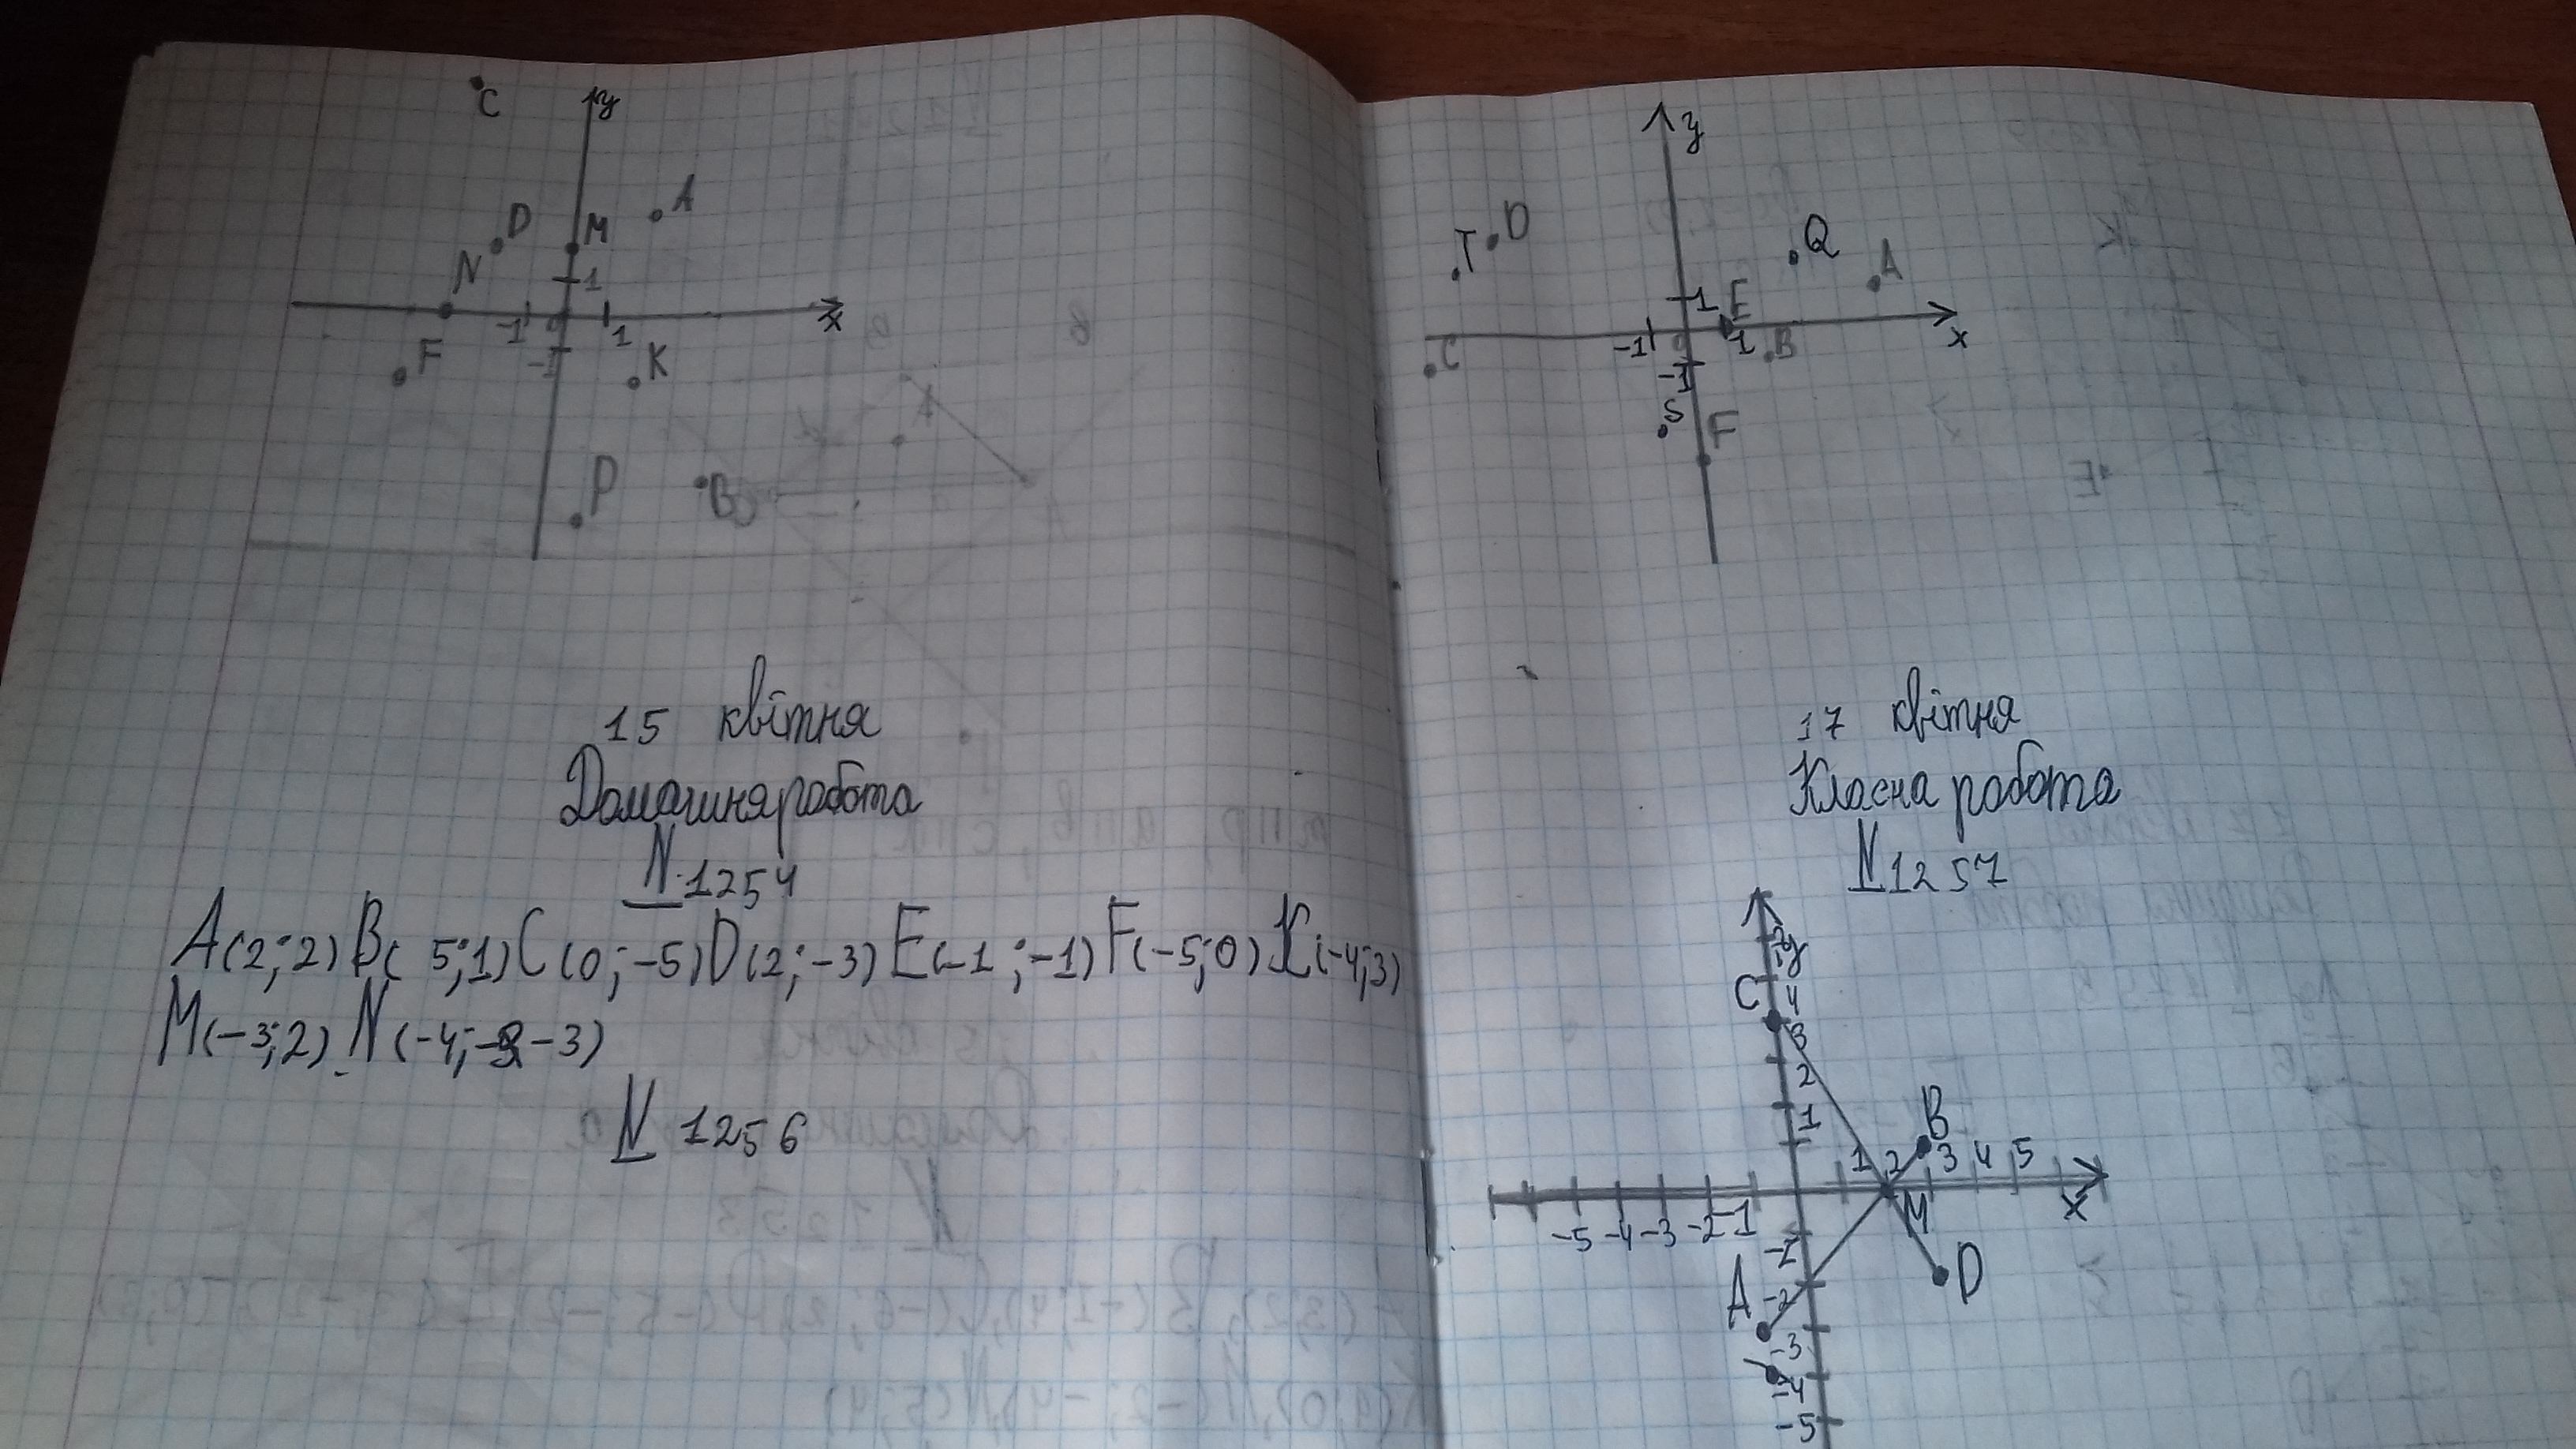 C
y
A
D
M
N
1
-1
0
1
x
F
-1
K
P
B
15 квітня
Домашня робота
N 1254
A(2;2) B( 5;1) C(0;-5) D(2;-3) E(-1;-1) F(-5;0) K(-4;3)
M(-3;2) N(-4; -3)
N 1256
y
T D
Q
A
1 E
-1 0 1 B
x
C
-1
S
F
17 квітня
Класна робота
N 1257
y
C 4
3
2
B
1
1 2 3 4 5
-5 -4 -3 -2 -1
M
x
-1
A -2
D
-3
-4
-5